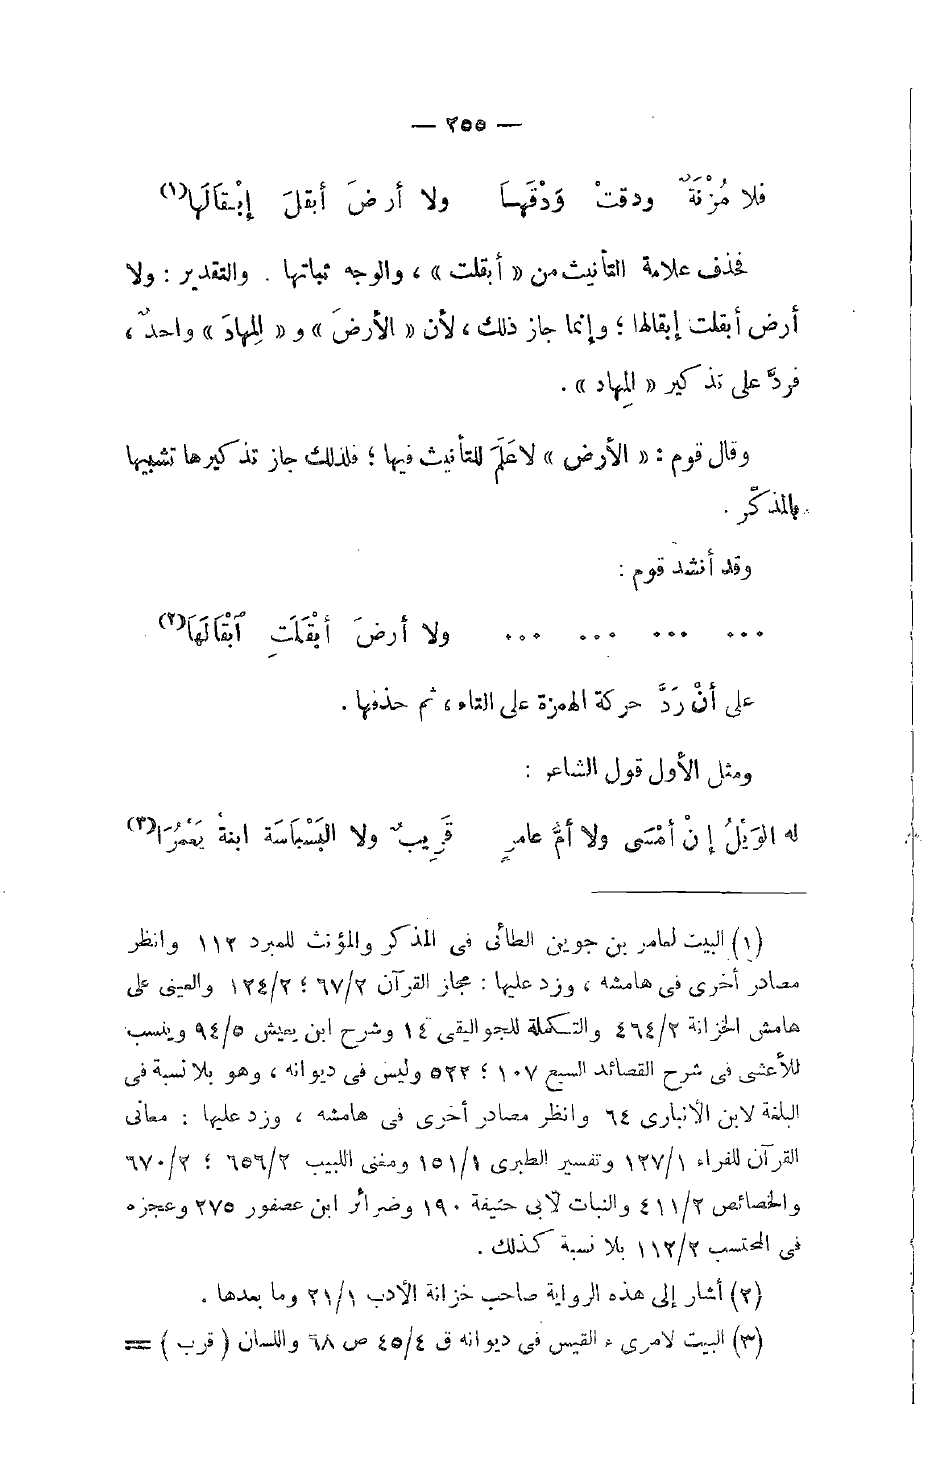 — ٢٥٥ —
فلا مُزْنَةٌ ودقتْ وَدْقَهـا ولا أرضَ أبقلَ إبْـقَالَها(١)
فحذف علامة التأنيث من « أبقلت » ، والوجه ثباتها . والتقدير : ولا
أرض أبقلت إبقالها ؛ وإنما جاز ذلك ، لأن « الأرضَ » و « المِهادَ » واحدٌ ،
فردَّ على تذكير « المِهاد » .
وقال قوم : « الأرض » لا عَلَمَ للتأنيث فيها ؛ فلذلك جاز تذكيرها تشبيها
بالمذكّر .
وقد أنشد قوم :
... ... ... ... ولا أرضَ أبْقَلَتِ ٱبْقَالَهَا(٢)
على أنْ رَدَّ حركة الهمزة على التاء ، ثم حذفها .
ومثل الأول قول الشاعر :
له الوَيْلُ إنْ أمْسَى ولا أمُّ عامرٍ قَرِيبٌ ولا البَسْبَاسَة ابنةُ يَعْمُرَا(٣)
(١) البيت لعامر بن جوين الطائى فى المذكر والمؤنث للمبرد ١١٢ وانظر
مصادر أخرى فى هامشه ، وزد عليها : مجاز القرآن ٦٧/٢ ؛ ١٢٤/٢ والعينى على
هامش الخزانة ٤٦٤/٢ والتكملة للجواليقى ١٤ وشرح ابن يعيش ٩٤/٥ وينسب
للأعشى فى شرح القصائد السبع ١٠٧ ؛ ٥٢٢ وليس فى ديوانه ، وهو بلا نسبة فى
البلغة لابن الأنبارى ٦٤ وانظر مصادر أخرى فى هامشه ، وزد عليها : معانى
القرآن للفراء ١٢٧/١ وتفسير الطبرى ١٥١/١ ومغنى اللبيب ٦٥٦/٢ ؛ ٦٧٠/٢
والخصائص ٤١١/٢ والنبات لأبى حنيفة ١٩٠ وضرائر ابن عصفور ٢٧٥ وعجزه
فى المحتسب ١١٢/٢ بلا نسبة كذلك .
(٢) أشار إلى هذه الرواية صاحب خزانة الأدب ٢١/١ وما بعدها .
(٣) البيت لامرىء القيس فى ديوانه ق ٤٥/٤ ص ٦٨ واللسان ( قرب ) =